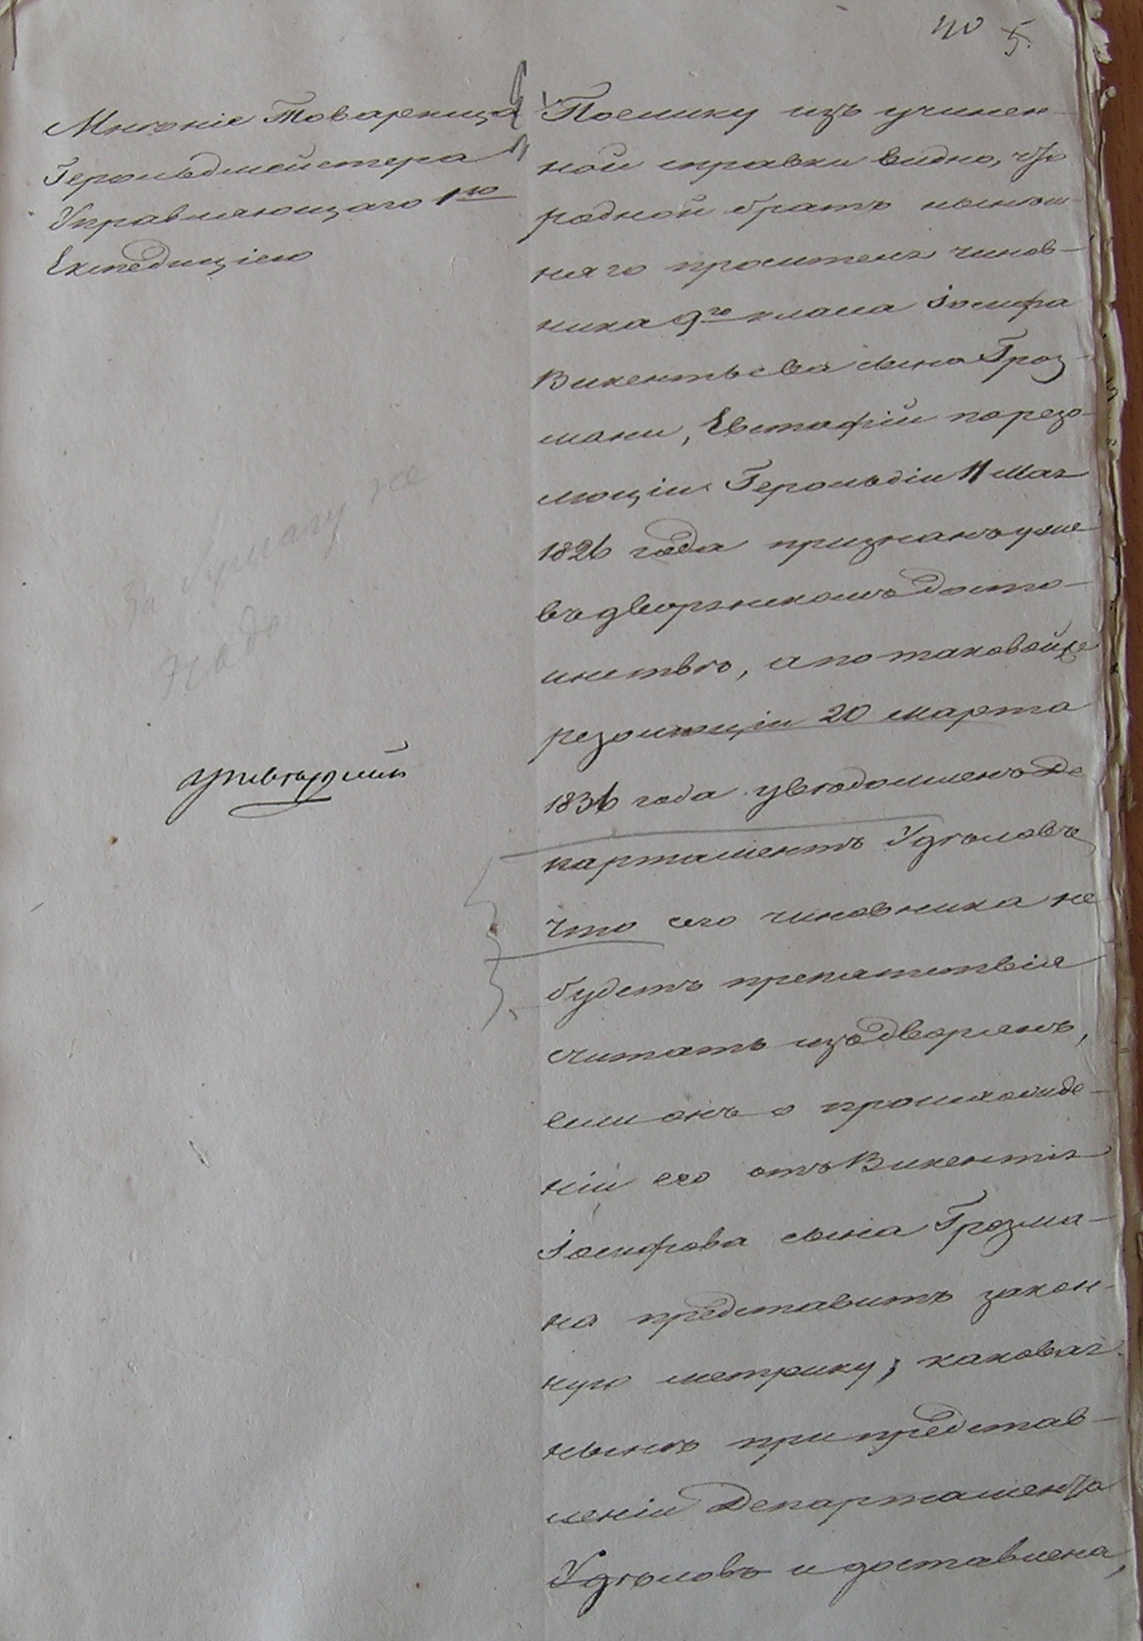 40 5.
Мнѣніе Товарища
Герольдмейстера
Управляющаго 1ю
Експедиціею
Поелику изъ учинен-
ной справки видно, что
родной братъ нынѣш-
няго просителя чинов-
ника 9го класа Іосифа
Викентьева сына Гроз-
мани, Евстафій по резо-
люціи Герольдіи 11 Мая
1826 года признанъ уже
въ дворянскомъ досто-
инствѣ, а по таковой же
резолюціи 20 марта
1836 года увѣдомленъ Де
партаментъ Удѣловъ
что сего чиновника не
будетъ препятствія
считать изъ дворянъ,
если онъ о происхожде-
ніи его отъ Викентія
Іосифова сына Грозма-
на представитъ закон-
ную метрику, каковая
нынѣ при представ-
леніи Департамента
Удѣловъ и доставлена,
За бумагу же